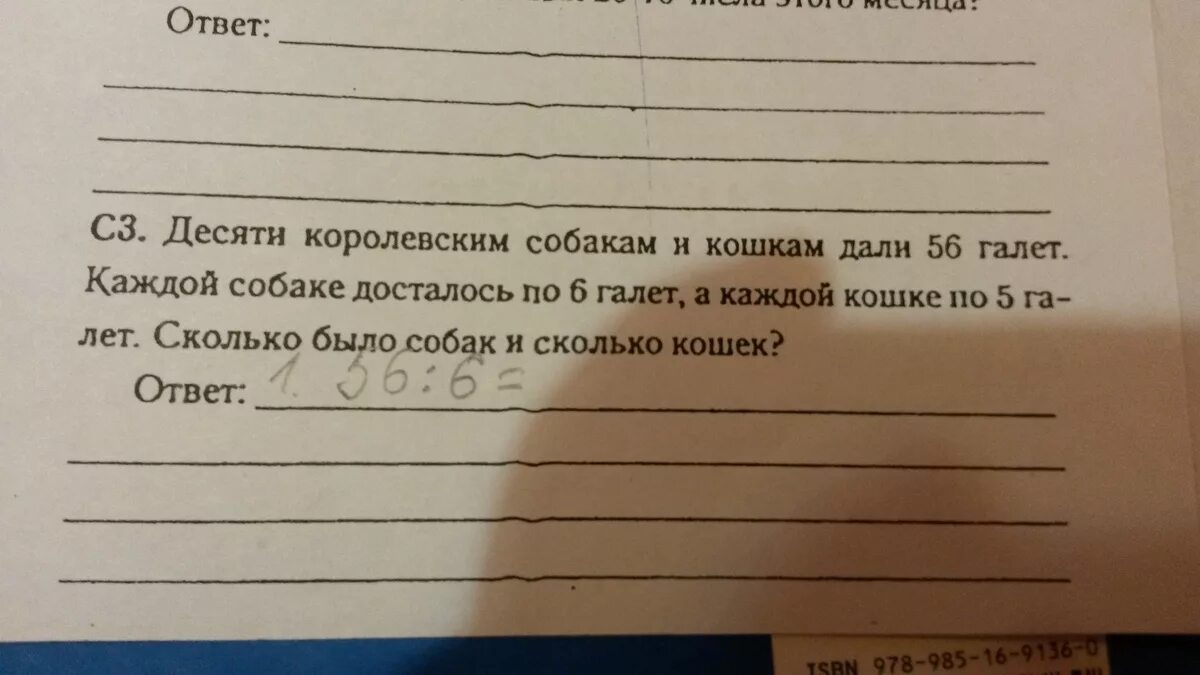 числа этого месяца?
Ответ:
С3. Десяти королевским собакам и кошкам дали 56 галет.
Каждой собаке досталось по 6 галет, а каждой кошке по 5 га-
лет. Сколько было собак и сколько кошек?
Ответ: 1. 56:6=
ISBN 978-985-16-9136-0